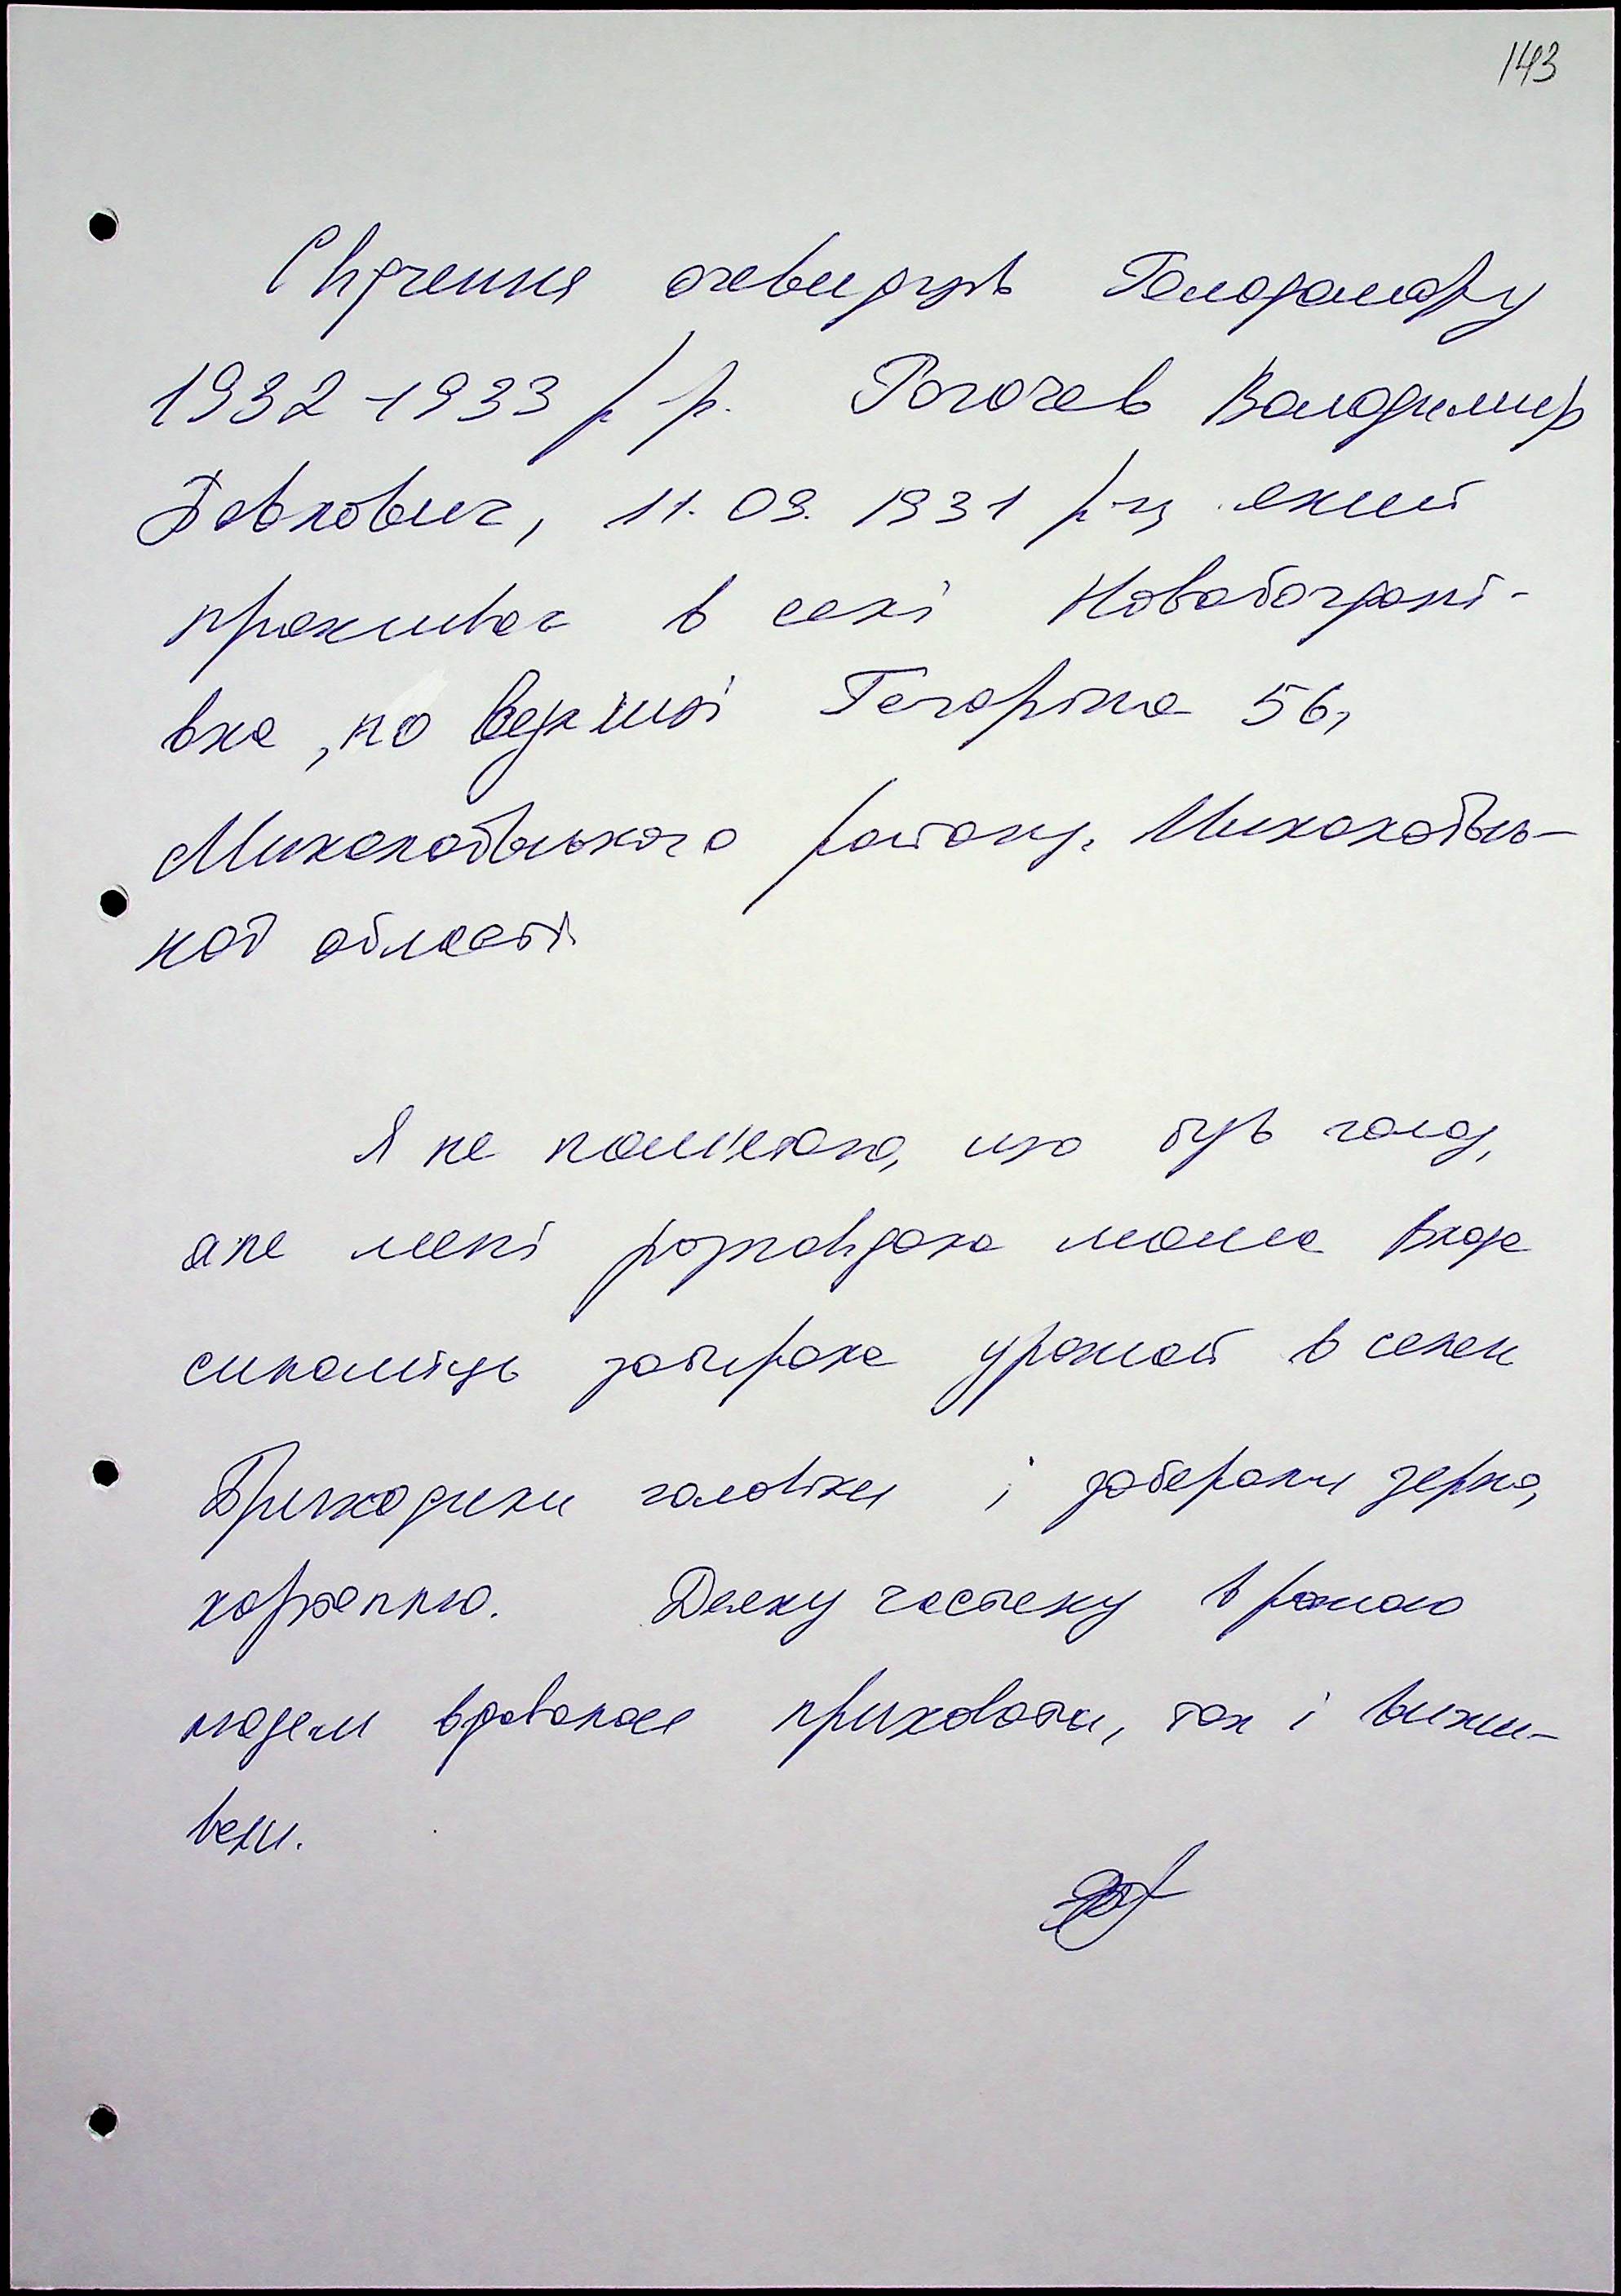 143
Свідчення очевидців Голодомору
1932-1933 р-р. Рогочев Володимир
Павлович, 11.09.1931 р-н, який
проживає в селі Новобогдані-
вка, по вулиці Гагаріна 56,
Миколаївського району, Миколаївсь-
кої області
Я не пам'ятаю, що був голод,
але мені розповідала мама Влада
силоміць забирала урожай в селян
Приходили чоловіки і заберали зерно,
картоплю. Деяку частину врожаю
людям вдавалося приховати, так і вижи-
вали.